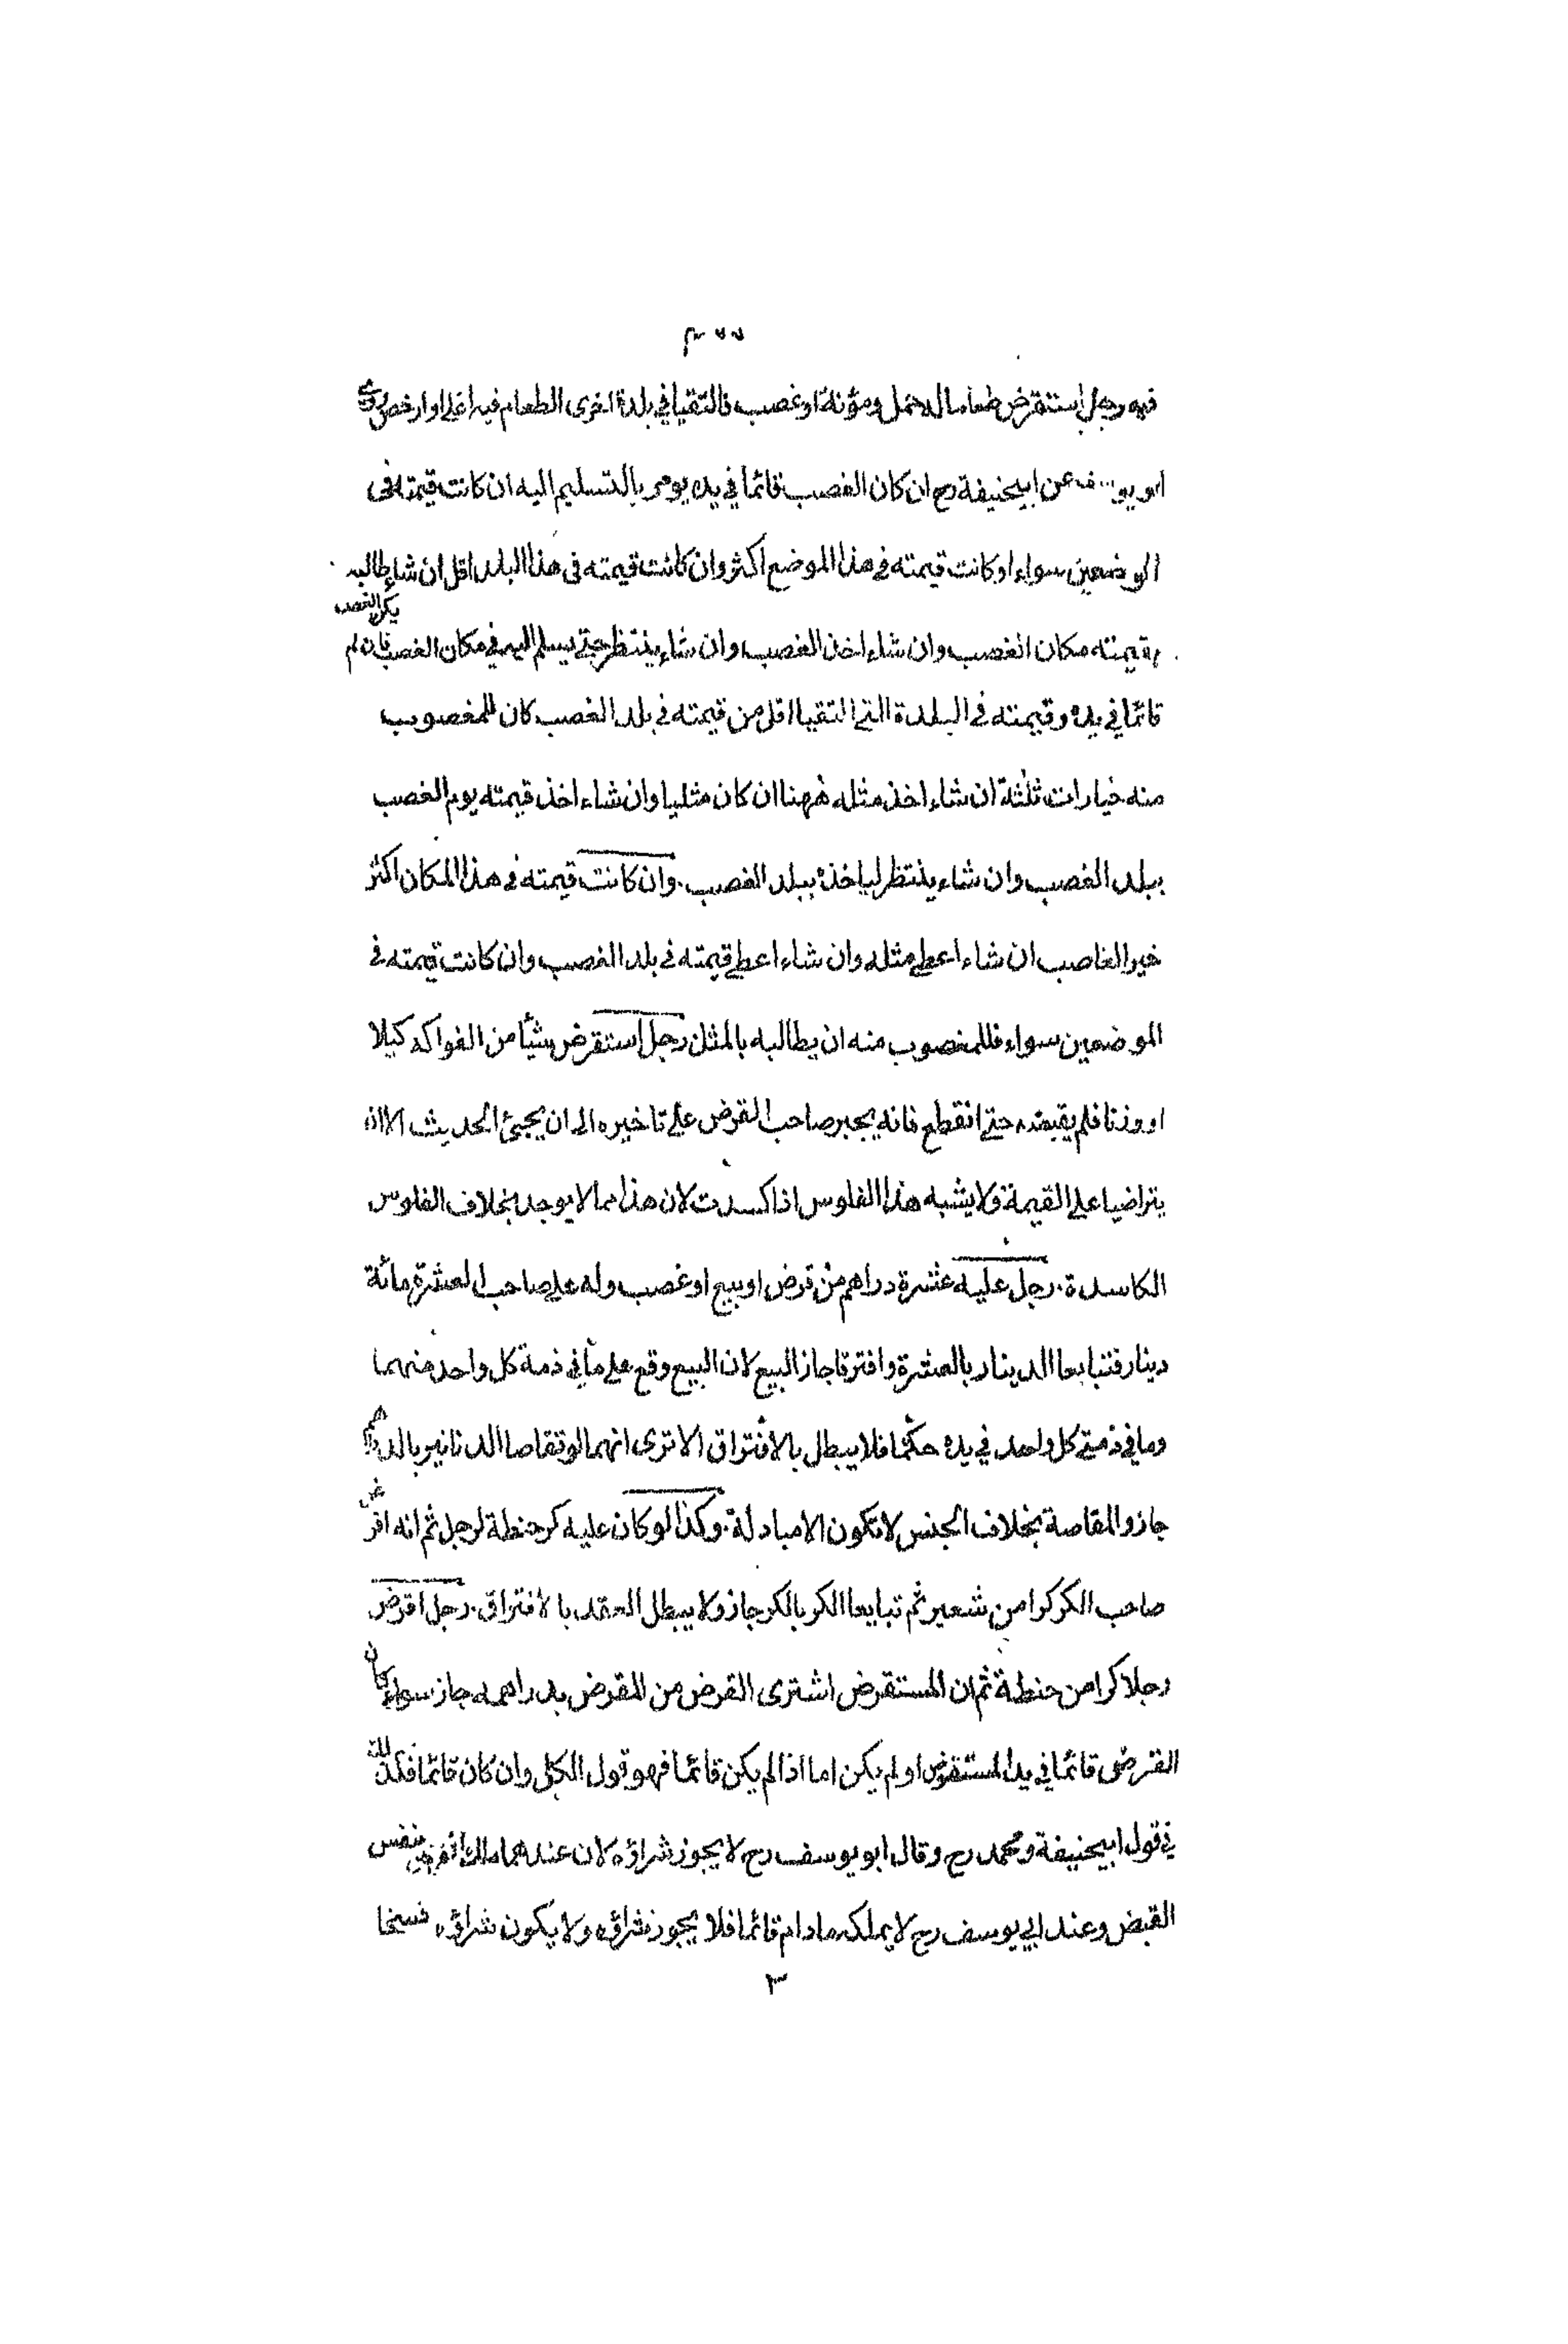 فيه رجل استقرض طعاما له حمل ومؤنة او غصب فالتقيا في بلدة اخرى الطعام فيه اغلى او ارخص روى
ابو يوسف عن ابيحنيفة رح ان كان الغصب قائما في يده يومر بالتسليم اليه ان كانت قيمته في
الموضعين سواء او كانت قيمته في هذا الموضع اكثر وان كانت قيمته في هذا البلد اقل ان شاء طالبه
بقيمته مكان الغصب وان شاء اخذ الغصب وان شاء ينتظر حتى يسلم اليه في مكان الغصب فان لم يكن الغصب
قائما في يده وقيمته في البلدة التي التقيا اقل من قيمته في بلد الغصب كان للمغصوب
منه خيارات ثلثة ان شاء اخذ مثله ههنا ان كان مثليا وان شاء اخذ قيمته يوم الغصب
ببلد الغصب وان شاء ينتظر لياخذه ببلد الغصب. وان كانت قيمته في هذا المكان اكثر
خير الغاصب ان شاء اعطى مثله وان شاء اعطى قيمته في بلد الغصب وان كانت قيمته في
الموضعين سواء فللمغصوب منه ان يطالبه بالمثل رجل استقرض شيئا من الفواكه كيلا
او وزنا فلم يقبضه حتى انقطع فانه يجبر صاحب القرض على تاخيره الى ان يجيئ الحديث الا ان
يتراضيا على القيمة ولا يشبه هذا الفلوس اذا كسدت لان هذا مما لا يوجد بخلاف الفلوس
الكاسدة. رجل عليه عشرة دراهم من قرض او بيع او غصب وله على صاحب العشرة مائة
دينار فتبايعا الدينار بالعشرة وافترقا جاز البيع لان البيع وقع على ما في ذمة كل واحد منهما
وما في ذمتى كل واحد في يده حكما فلا يبطل بالافتراق الا ترى انهما لو تقاصا الدنانير بالدراهم
جاز والمقاصة بخلاف الجنس لا تكون الا مبادلة. وكذا لو كان عليه كر حنطة لرجل ثم انه اقرض
صاحب الكر كرا من شعير ثم تبايعا الكر بالكر جاز ولا يبطل العقد بالافتراق. رجل اقرض
رجلا كرا من حنطة ثم ان المستقرض اشترى القرض من المقرض بدراهم جاز سواء كان
القرض قائما في يد المستقرض او لم يكن اما اذا لم يكن قائما فهو قول الكل وان كان قائما فكذلك
في قول ابيحنيفة ومحمد رح وقال ابو يوسف رح لا يجوز شراؤه لان عندهما ملك القرض بنفس
القبض وعند ابي يوسف رح لا يملك ما دام قائما فلا يجوز شراؤه ولا يكون شراؤه فسخا
٣